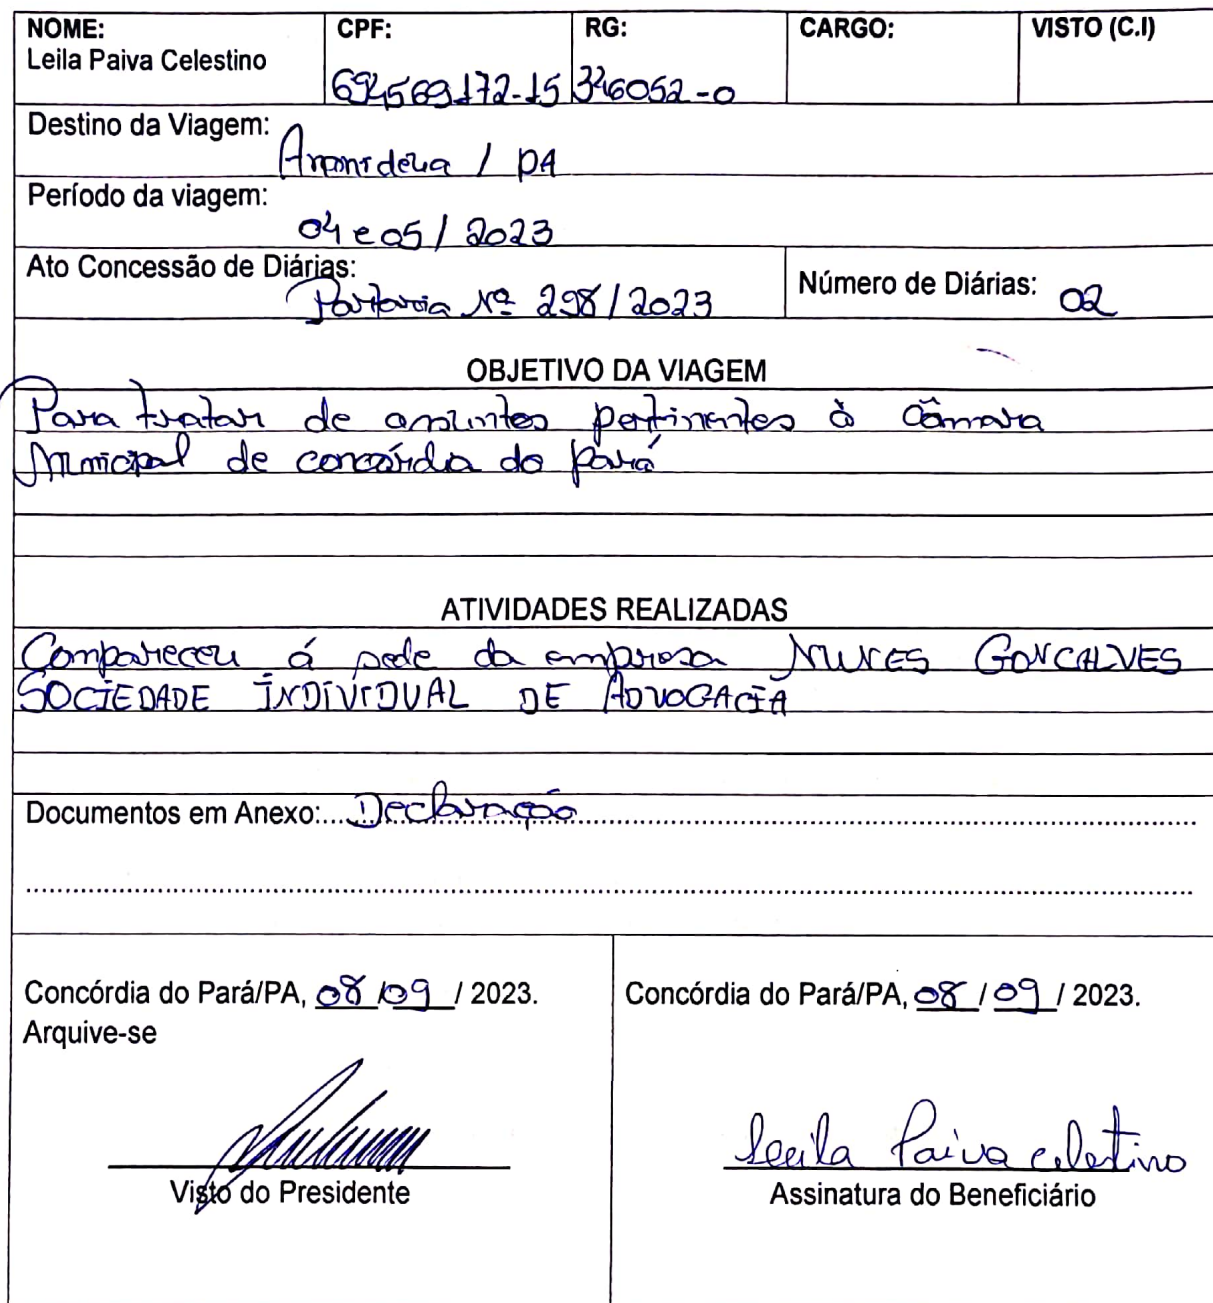 NOME: CPF: RG: CARGO: VISTO (C.I)
Leila Paiva Celestino
694569172-15 346052-0
Destino da Viagem:
/ PA
Período da viagem:
04 e 05 / 2023
Ato Concessão de Diárias:
Portaria Nº 298/2023
Número de Diárias: 02
OBJETIVO DA VIAGEM
Para tratar de assuntos pertinentes à Câmara
Municipal de concórdia do Pará
ATIVIDADES REALIZADAS
Compareceu á sede da empresa NUNES GONCALVES
SOCIEDADE INDIVIDUAL DE ADVOCACIA
Documentos em Anexo:....Declaração
Concórdia do Pará/PA, 08 / 09 / 2023.
Arquive-se
Visto do Presidente
Concórdia do Pará/PA, 08 / 09 / 2023.
Leila Paiva Celestino
Assinatura do Beneficiário